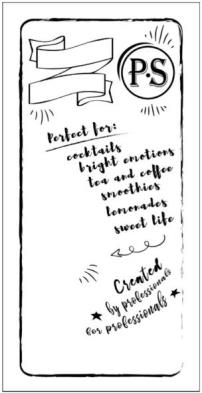 P.S
Perfect for:
cocktails
bright emotions
tea and coffee
smoothies
lemonades
sweet life
Created
by professionals
for professionals